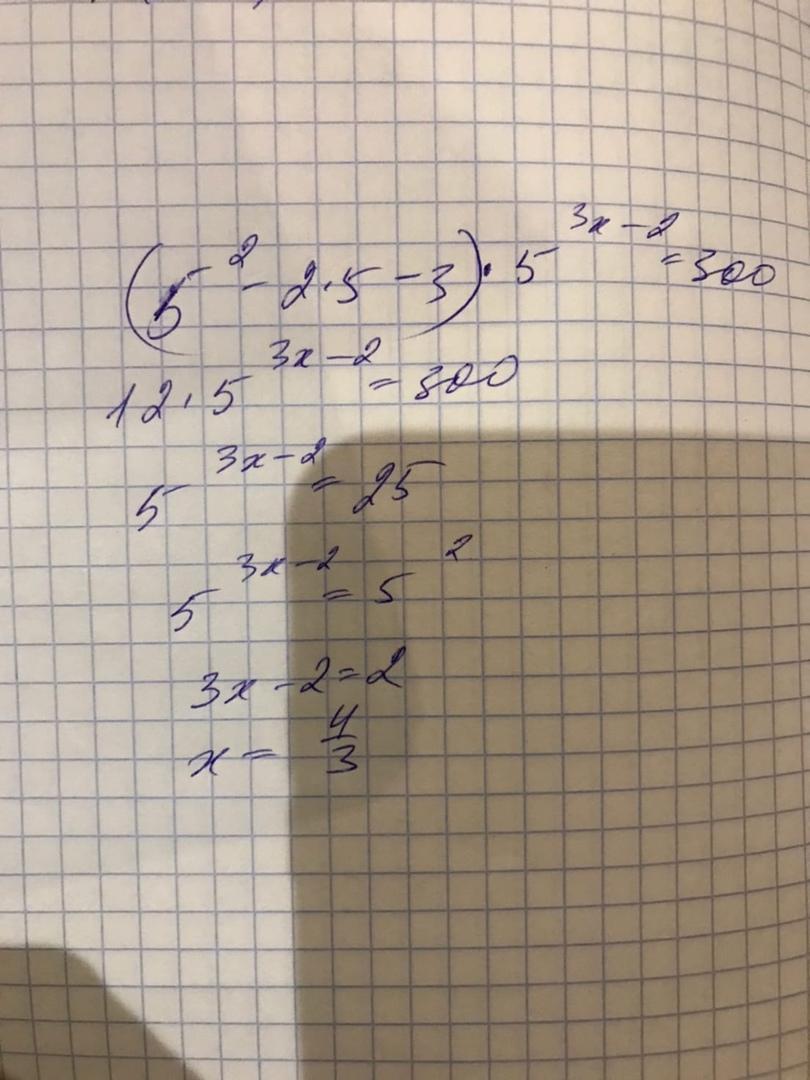 (5² - 2·5 - 3)·5^(3x-2) = 300
12·5^(3x-2) = 300
5^(3x-2) = 25
5^(3x-2) = 5²
3x - 2 = 2
x = 4/3